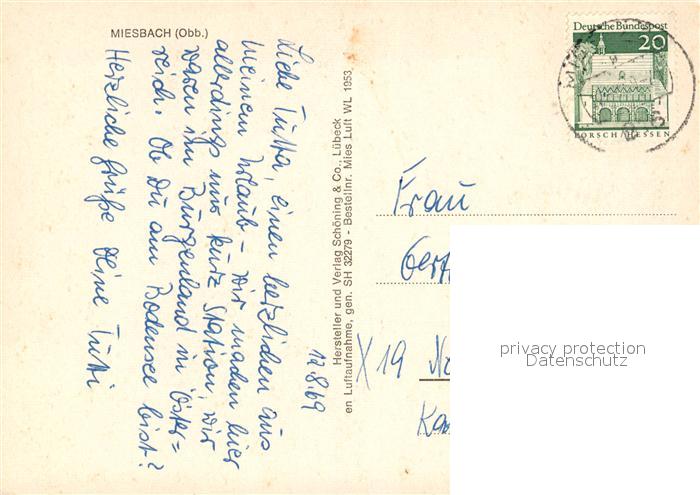 MIESBACH (Obb.)
12.8.69
Liebe Tutta, einen herzlichen aus
meinem Urlaub - wir machen hier
allerdings nur kurz Station, wir
waren im Burgenland in Öster=
reich. Ob Du am Bodensee bist?
Herzliche Grüße Deine Tutti
Hersteller und Verlag Schöning & Co., Lübeck
en Luftaufnahme, gen. SH 32279 - Bestellnr. Mies Luft WL 1953
Deutsche Bundespost
20
LORSCH/HESSEN
Frau
X 19
privacy protection
Datenschutz